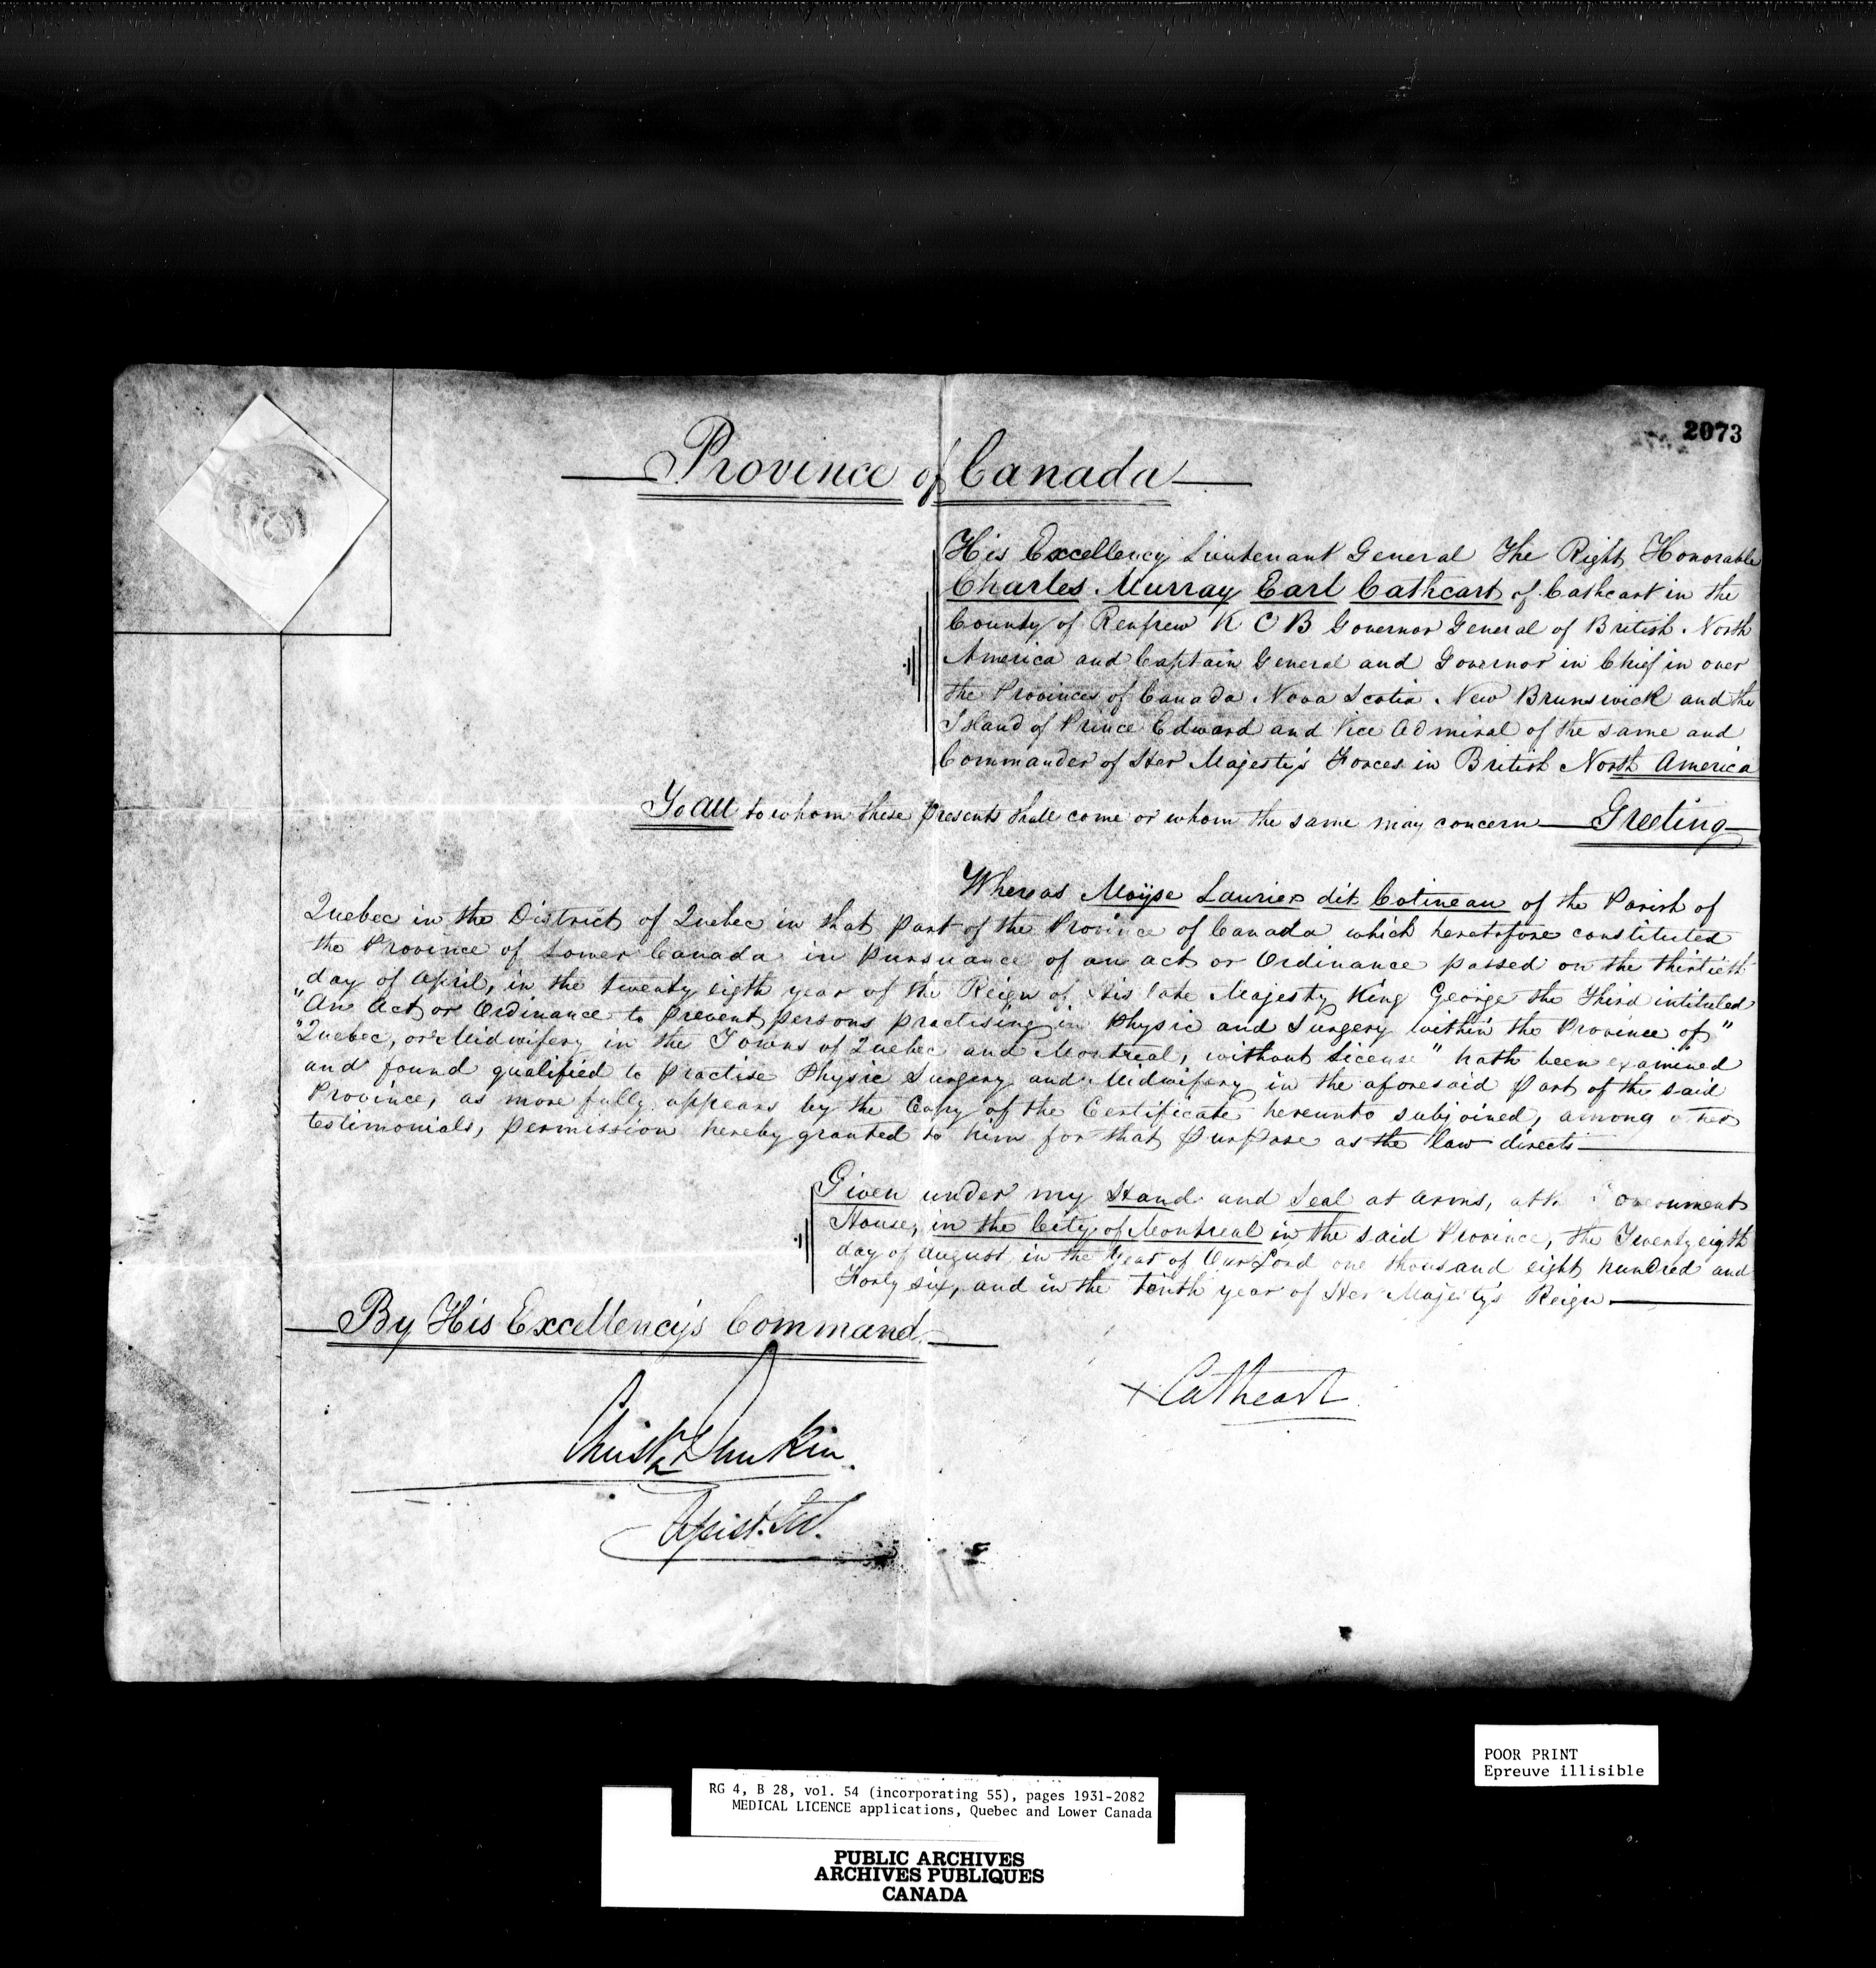 2073
Province of Canada
His Excellency Lieutenant General The Right Honorable
Charles Murray Earl Cathcart of Cathcart in the
County of Renfrew K C B Governor General of British North
America and Captain General and Governor in Chief in over
the Provinces of Canada Nova Scotia New Brunswick and the
Island of Prince Edward and Vice Admiral of the same and
Commander of Her Majesty's Forces in British North America
To all to whom these presents shall come or whom the same may concern Greeting
Whereas Moÿse Laurier dit Cotineau of the Parish of
Quebec in the District of Quebec in that part of the Province of Canada which heretofore constituted
the Province of Lower Canada in pursuance of an act or Ordinance passed on the thirtieth
day of April, in the twenty eigth year of the Reign of His late Majesty King George the Third intituled
"An Act or Ordinance to prevent persons practising in Physic and Surgery within the Province of"
"Quebec, or Midwifery in the Towns of Quebec and Montreal, without License" hath been examined
and found qualified to practise Physic Surgery and Midwifery in the aforesaid part of the said
Province, as more fully appears by the Copy of the Certificate hereunto subjoined, among other
testimonials, permission hereby granted to him for that purpose as the law directs
Given under my Hand and Seal at Arms, at Government
House, in the City of Montreal in the said Province, the Twenty eigth
day of August in the Year of Our Lord one thousand eight hundred and
Forty six, and in the tenth year of Her Majesty's Reign.
By His Excellency's Command.
Cathcart
Christr Dunkin.
Assist. Sec.
POOR PRINT
Epreuve illisible
RG 4, B 28, vol. 54 (incorporating 55), pages 1931-2082
MEDICAL LICENCE applications, Quebec and Lower Canada
PUBLIC ARCHIVES
ARCHIVES PUBLIQUES
CANADA